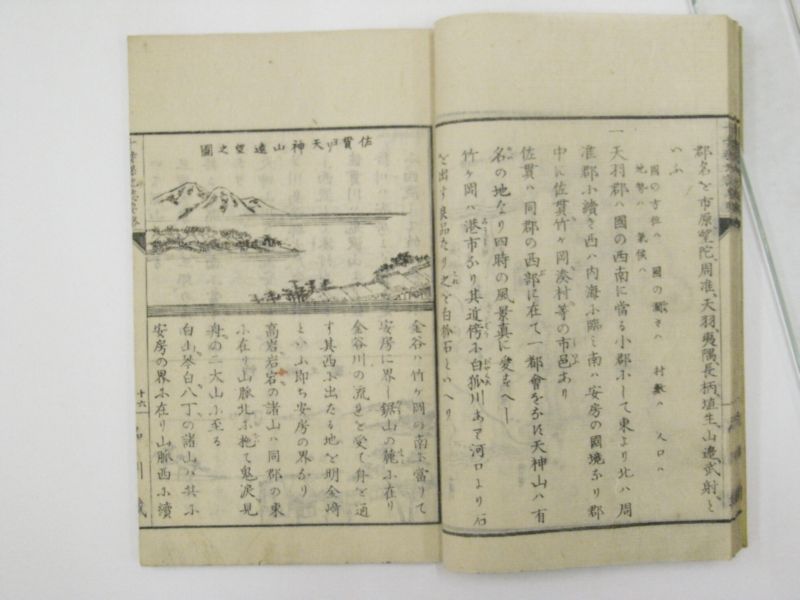 郡名を市原、望陀、周准、天羽、夷隅、長柄、埴生、山邊、武射、と
いふ
國の方位ハ 國の濶さハ 村數ハ 人口ハ
地勢ハ 氣候ハ
一天羽郡ハ國の西南に當る小郡ふして東より北ハ周
准郡ふ續き西ハ内海ふ臨ミ南ハ安房の國境なり郡
中に佐貫竹ヶ岡湊村等の市邑あり
佐貫ハ同郡の西部に在て一都會をなせ天神山ハ有
名の地なり四時の風景真に愛すへし
竹ヶ岡ハ港市なり其近傍ふ白狐川あり河口より石
を出す良品なり之を白狐石といへり
佐貫ヨリ天神山遠望之圖
金谷ハ竹ヶ岡の南ふ當りて
安房に界し鋸山の麓ふ在り
金谷川の流を受て舟を通
す其西ふ出たる地を明金崎
といふ即ち安房の界なり
高岩岩宕の諸山ハ同郡の東
ふ在り山脈北ふ拖て鬼淚見
舟の二大山ふ至る
白山琴白八丁の諸山ハ共ふ
安房の界ふ在り山脈西ふ續
十六